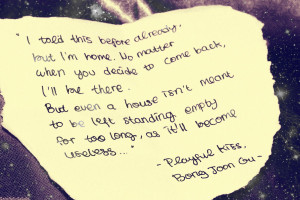 "I told this before already.
but I'm home. No matter
when you decide to come back,
I'll be there.
But even a house isn't meant
to be left standing empty
for too long, as it'll become
useless..."
- Playful Kiss,
Bong Joon Gu -